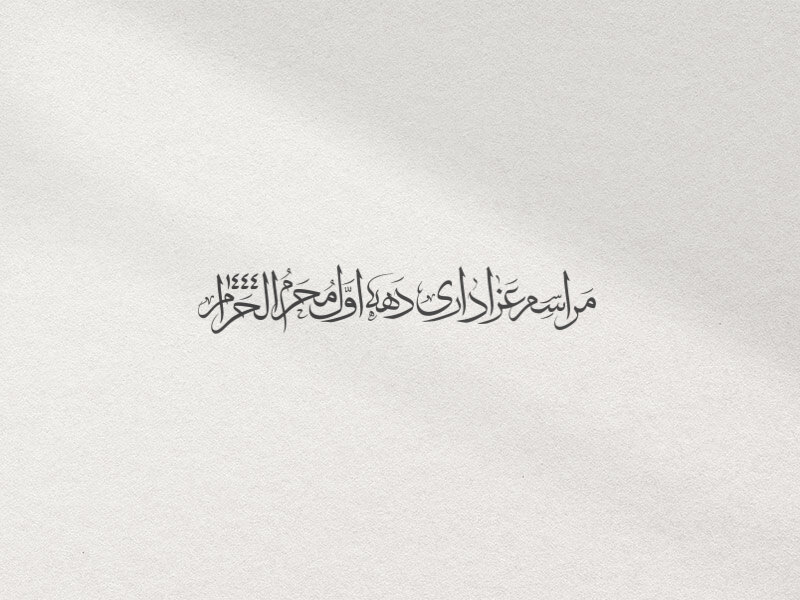 مراسم عزاداری دههٔ اوّل مُحَرمُ الحَرام ۱۴۴۴